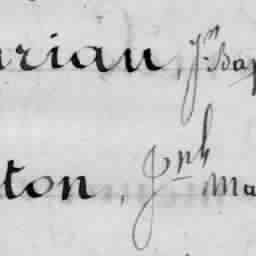 rian, Jn Bap
ton, Jph Ma